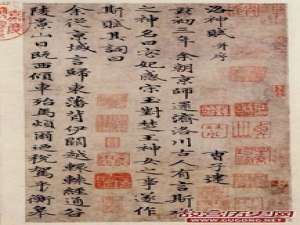 洛神賦 并序
曹子建
黃初三年余朝京師還濟洛川古人有言斯水
之神名曰宓妃感宋玉對楚王神女之事遂作
斯賦其詞曰
余從京域言歸東藩背伊闕越轘轅經通谷
陵景山日既西傾車殆馬煩爾迺稅駕乎蘅皋
HTTP://WWW.GUGONG.NET